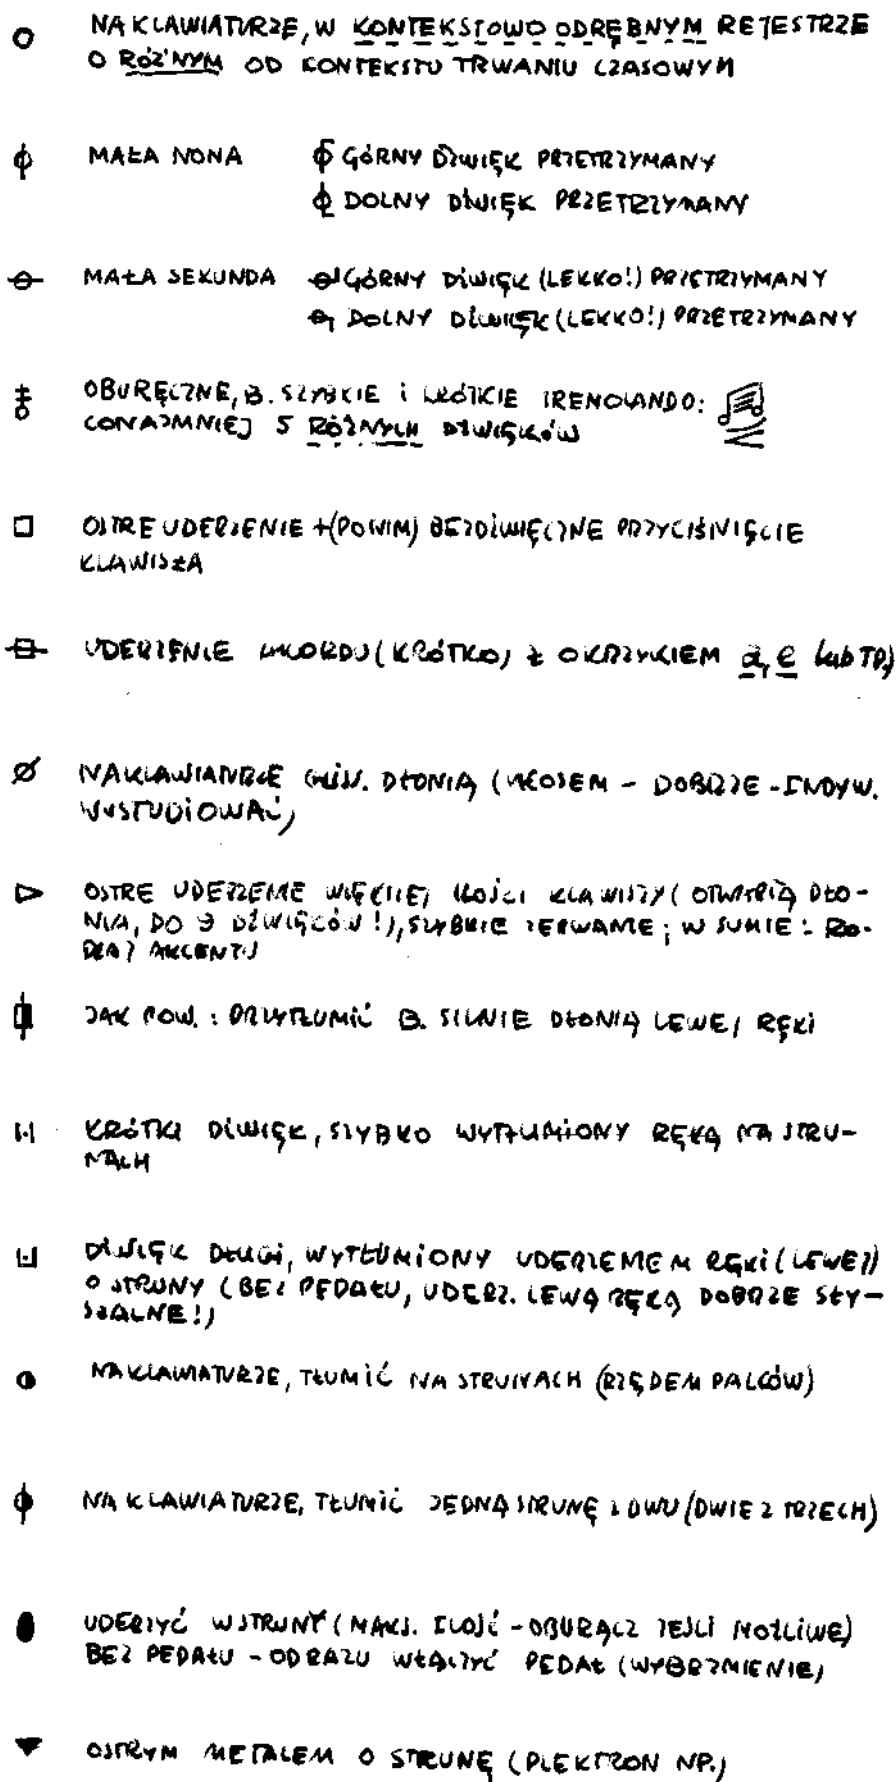 NA KLAWIATURZE, W KONTEKSTOWO ODRĘBNYM REJESTRZE
O RÓŻNYM OD KONTEKSTU TRWANIU CZASOWYM
MAŁA NONA GÓRNY DŹWIĘK PRZETRZYMANY
DOLNY DŹWIĘK PRZETRZYMANY
MAŁA SEKUNDA GÓRNY DŹWIĘK (LEKKO!) PRZETRZYMANY
DOLNY DŹWIĘK (LEKKO!) PRZETRZYMANY
OBURĘCZNE, B. SZYBKIE i KRÓTKIE TREMOLANDO:
CONAJMNIEJ 5 RÓŻNYCH DŹWIĘKÓW
OSTRE UDERZENIE + (POWIM) BEZDŹWIĘCZNE PRZYCIŚNIĘCIE
KLAWISZA
UDERZENIE AKORDU (KRÓTKO) Z OKRZYKIEM a, e lub TP.)
NA KLAWIATURZE DŁONIĄ ( - DOBRZE - INDYW.
WYSTUDIOWAĆ)
OSTRE UDERZENIE WIĘKSZEJ ILOŚCI KLAWISZY (OTWARTĄ DŁO-
NIĄ, DO 9 DŹWIĘKÓW!), SZYBKIE ZERWANIE; W SUMIE: RO-
DZAJ AKCENTU
JAK POW.: PRZYTŁUMIĆ B. SILNIE DŁONIĄ LEWEJ RĘKI
KRÓTKI DŹWIĘK, SZYBKO WYTŁUMIONY RĘKĄ NA STRU-
NACH
DŹWIĘK DŁUGI, WYTŁUMIONY UDERZENIEM RĘKI (LEWEJ)
O STRUNY (BEZ PEDAŁU, UDERZ. LEWĄ RĘKĄ DOBRZE SŁY-
SZALNE!)
NA KLAWIATURZE, TŁUMIĆ NA STRUNACH (RZĘDEM PALCÓW)
NA KLAWIATURZE, TŁUMIĆ JEDNĄ STRUNĘ Z DWU (DWIE Z TRZECH)
UDERZYĆ W STRUNY (MAKS. ILOŚĆ - OBURĄCZ JEŚLI MOŻLIWE)
BEZ PEDAŁU - ODRAZU WŁĄCZYĆ PEDAŁ (WYBRZMIENIE)
OSTRYM METALEM O STRUNĘ (PLEKTRON NP.)